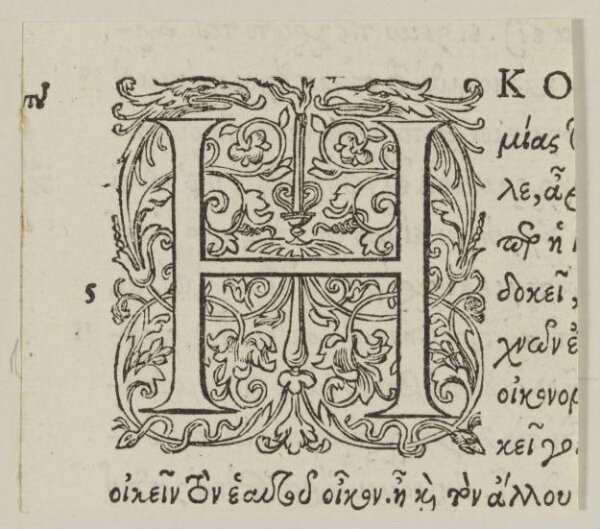 Η ΚΟ
μίας τ
λε, ἆρ
περ ἡ
5
δοκεῖ,
χνῶν ἐ
οἰκονομ
κεῖ γο
οἰκεῖν τὸν ἑαυτοῦ οἶκον. ἦ καὶ τὸν ἄλλου